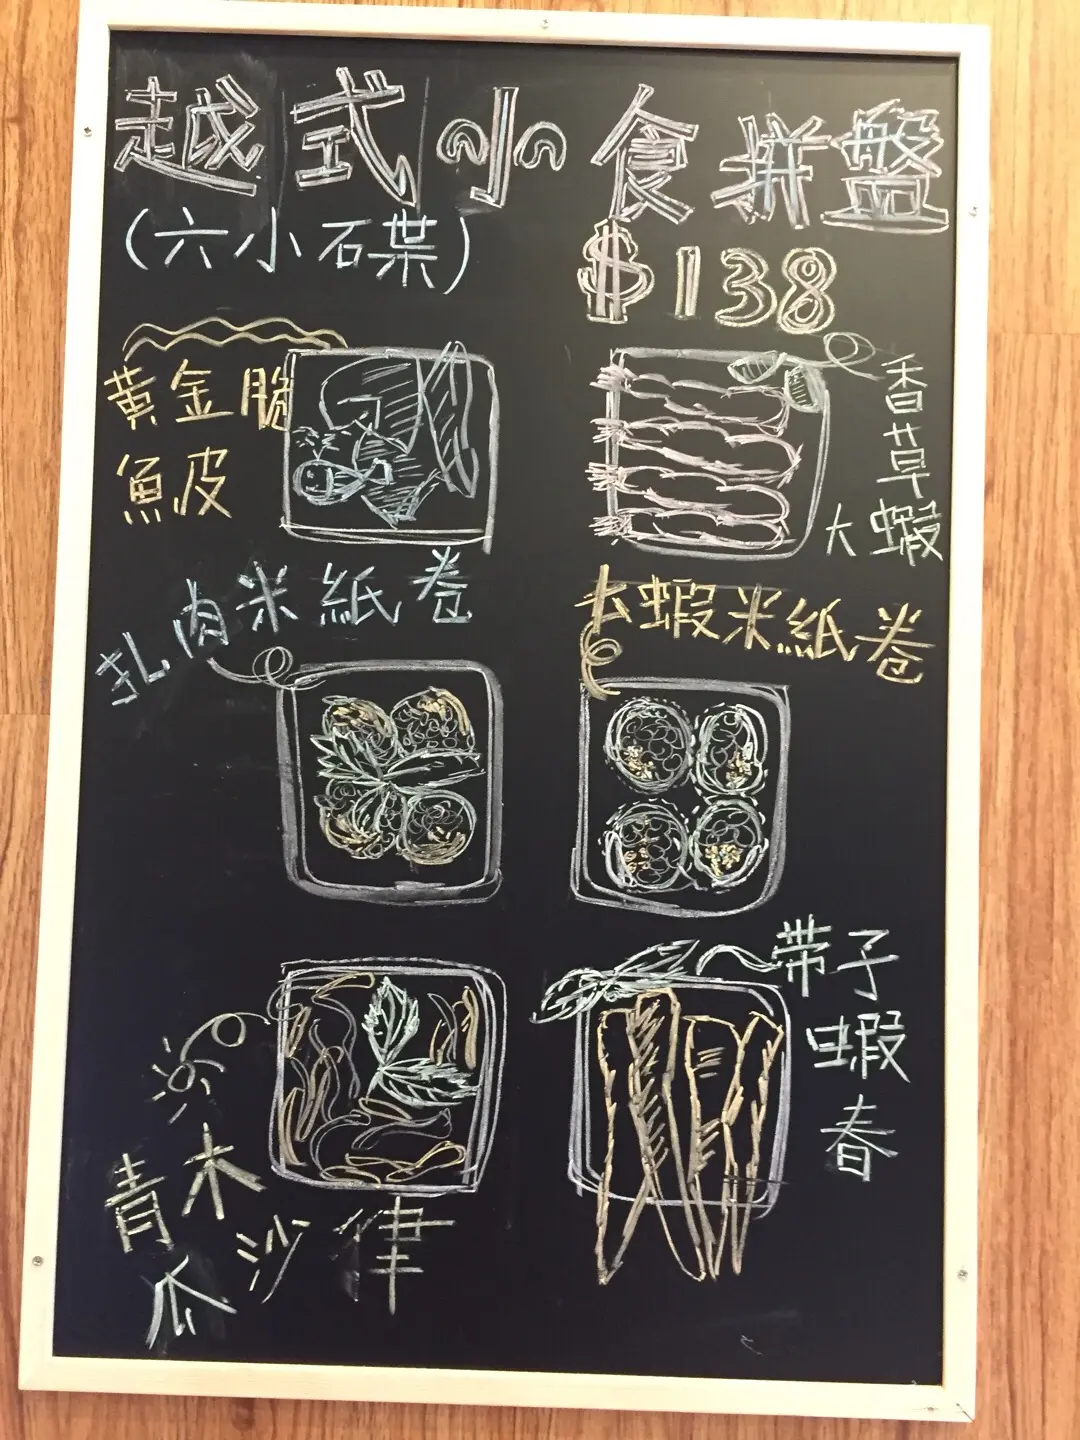 越式小食拼盤
(六小石碟)
$138
黃金脆
魚皮
香草
大蝦
扎肉米紙卷
大蝦米紙卷
青木瓜沙律
带子
蝦
春